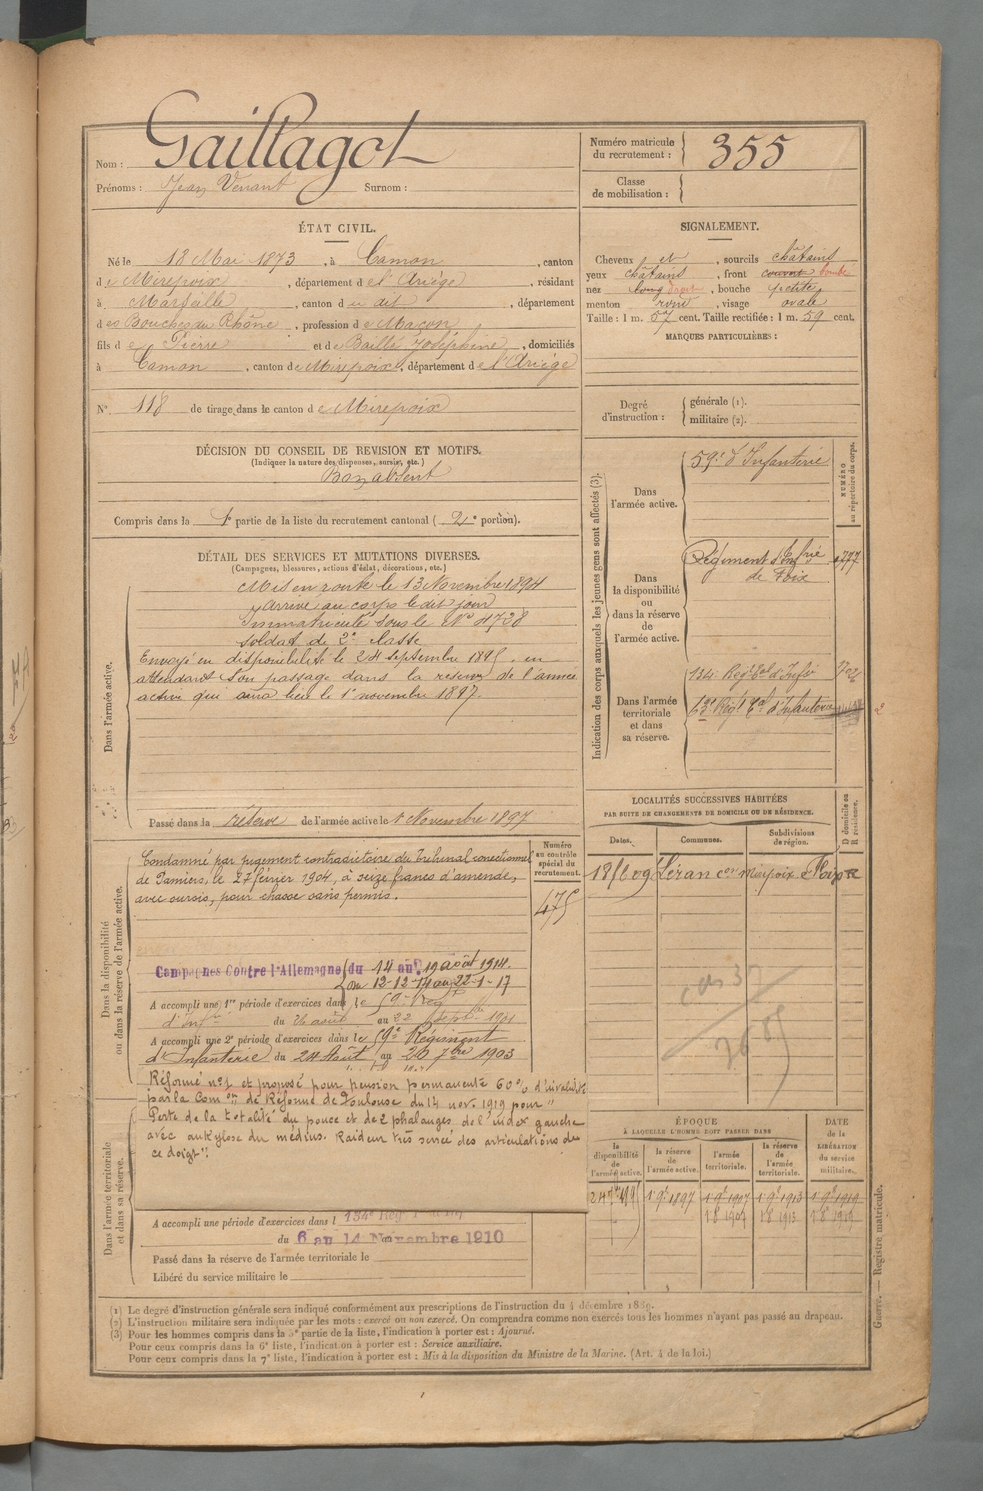 Nom : Gaillagot
Prénoms : Jean Venant Surnom :
Numéro matricule du recrutement : 355
Classe de mobilisation :
ÉTAT CIVIL.
Né le 18 Mai 1873, à Camon, canton
de Mirepoix, département de l'Ariège, résidant
à Marseille, canton du dit, département
des Bouches du Rhône, profession de Maçon
fils de Pierre et de Baillé Joséphine, domiciliés
à Camon, canton de Mirepoix, département de l'Ariège
N° 118 de tirage dans le canton de Mirepoix
SIGNALEMENT.
Cheveux et, sourcils châtains
yeux châtains, front couvert bombé
nez long, bouche petite
menton rond, visage ovale
Taille : 1 m. 57 cent. Taille rectifiée : 1 m. 59 cent.
MARQUES PARTICULIÈRES :
Degré d'instruction : générale (1).
militaire (2).
DÉCISION DU CONSEIL DE REVISION ET MOTIFS.
(Indiquer la nature des dispenses, sursis, etc.)
Bon absent
Compris dans la 1e partie de la liste du recrutement cantonal ( 2e portion).
DÉTAIL DES SERVICES ET MUTATIONS DIVERSES.
(Campagnes, blessures, actions d'éclat, décorations, etc.)
Dans l'armée active.
Mis en route le 13 Novembre 1894
Arrivé au corps le dit jour
Immatriculé sous le N° 4728
Soldat de 2e classe
Envoyé en disponibilité le 24 septembre 1895, en
attendant son passage dans la réserve de l'armée
active qui aura lieu le 1er novembre 1897.
Passé dans la réserve de l'armée active le 1 Novembre 1897
Indication des corps auxquels les jeunes gens sont affectés (3).
NUMÉRO au répertoire du corps.
Dans l'armée active.
59e d'Infanterie
Dans la disponibilité ou dans la réserve de l'armée active.
Régiment d'Infrie
de Foix
Dans l'armée territoriale et dans sa réserve.
134e Régt Eal d'Infie
63e Régt Eal d'Infanterie
Dans la disponibilité ou dans la réserve de l'armée active.
Numéro au contrôle spécial du recrutement.
475
Condamné par jugement contradictoire du Tribunal correctionnel
de Pamiers, le 27 février 1904, à seize francs d'amende,
avec sursis, pour chasse sans permis.
Campagnes Contre l'Allemagne du 14 au 19 août 1914.
du 12-12-14 au 22-1-17
A accompli une 1re période d'exercices dans le 59e Reg
d'Infie du 26 août au 22 septbre 1901
A accompli une 2e période d'exercices dans le 59e Régiment
d'Infanterie du 24 Août au 20 7bre 1903
Réformé n°1 et proposé pour pension permanente 60% d'invalidité
par la Comon de Réforme de Toulouse du 14 nov. 1919 pour "
Perte de la totalité du pouce et de 2 phalanges de l'index gauche
avec ankylose du médius. Raideur très serrée des articulations de
ce doigt".
Dans l'armée territoriale et dans sa réserve.
A accompli une période d'exercices dans l 134e
du 6 au 14 Novembre 1910
Passé dans la réserve de l'armée territoriale le
Libéré du service militaire le
LOCALITÉS SUCCESSIVES HABITÉES
PAR SUITE DE CHANGEMENTS DE DOMICILE OU DE RÉSIDENCE.
Dates. Communes. Subdivisions de région. D domicile ou R résidence.
Léran con Mirepoix Foix R
ÉPOQUE
À LAQUELLE L'HOMME DOIT PASSER DANS
la disponibilité de l'armée active. la réserve de l'armée active. l'armée territoriale. la réserve de l'armée territoriale.
DATE de la LIBÉRATION du service militaire.
1 9e 1897 1 9e 1907 1 9e 1913 1 9e 1919
1 8 1907 1 8 1913 1 8 1919
Guerre. — Registre matricule.
(1) Le degré d'instruction générale sera indiqué conformément aux prescriptions de l'instruction du 4 décembre 1889.
(2) L'instruction militaire sera indiquée par les mots : exercé ou non exercé. On comprendra comme non exercés tous les hommes n'ayant pas passé au drapeau.
(3) Pour les hommes compris dans la 5e partie de la liste, l'indication à porter est : Ajourné.
Pour ceux compris dans la 6e liste, l'indication à porter est : Service auxiliaire.
Pour ceux compris dans la 7e liste, l'indication à porter est : Mis à la disposition du Ministre de la Marine. (Art. 4 de la loi.)